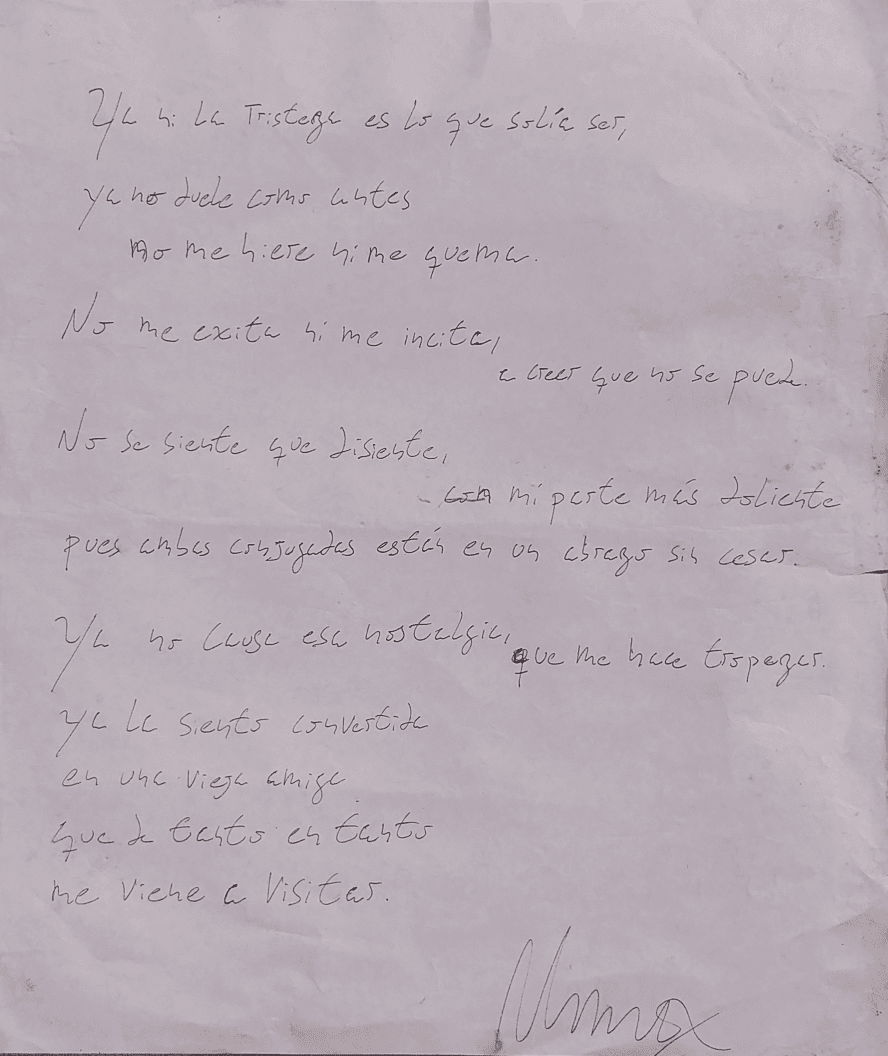 Ya ni la Tristeza es lo que solía ser,
ya no duele como antes
no me hiere ni me quema.
No me exita ni me incita,
a creer que no se puede.
No se siente que disiente,
con mi parte más doliente
pues ambas conjugadas están en un abrazo sin cesar.
Ya no causa esa nostalgia,
que me hace tropezar.
ya la siento convertida
en una vieja amiga
que de tanto en tanto
me viene a visitar.